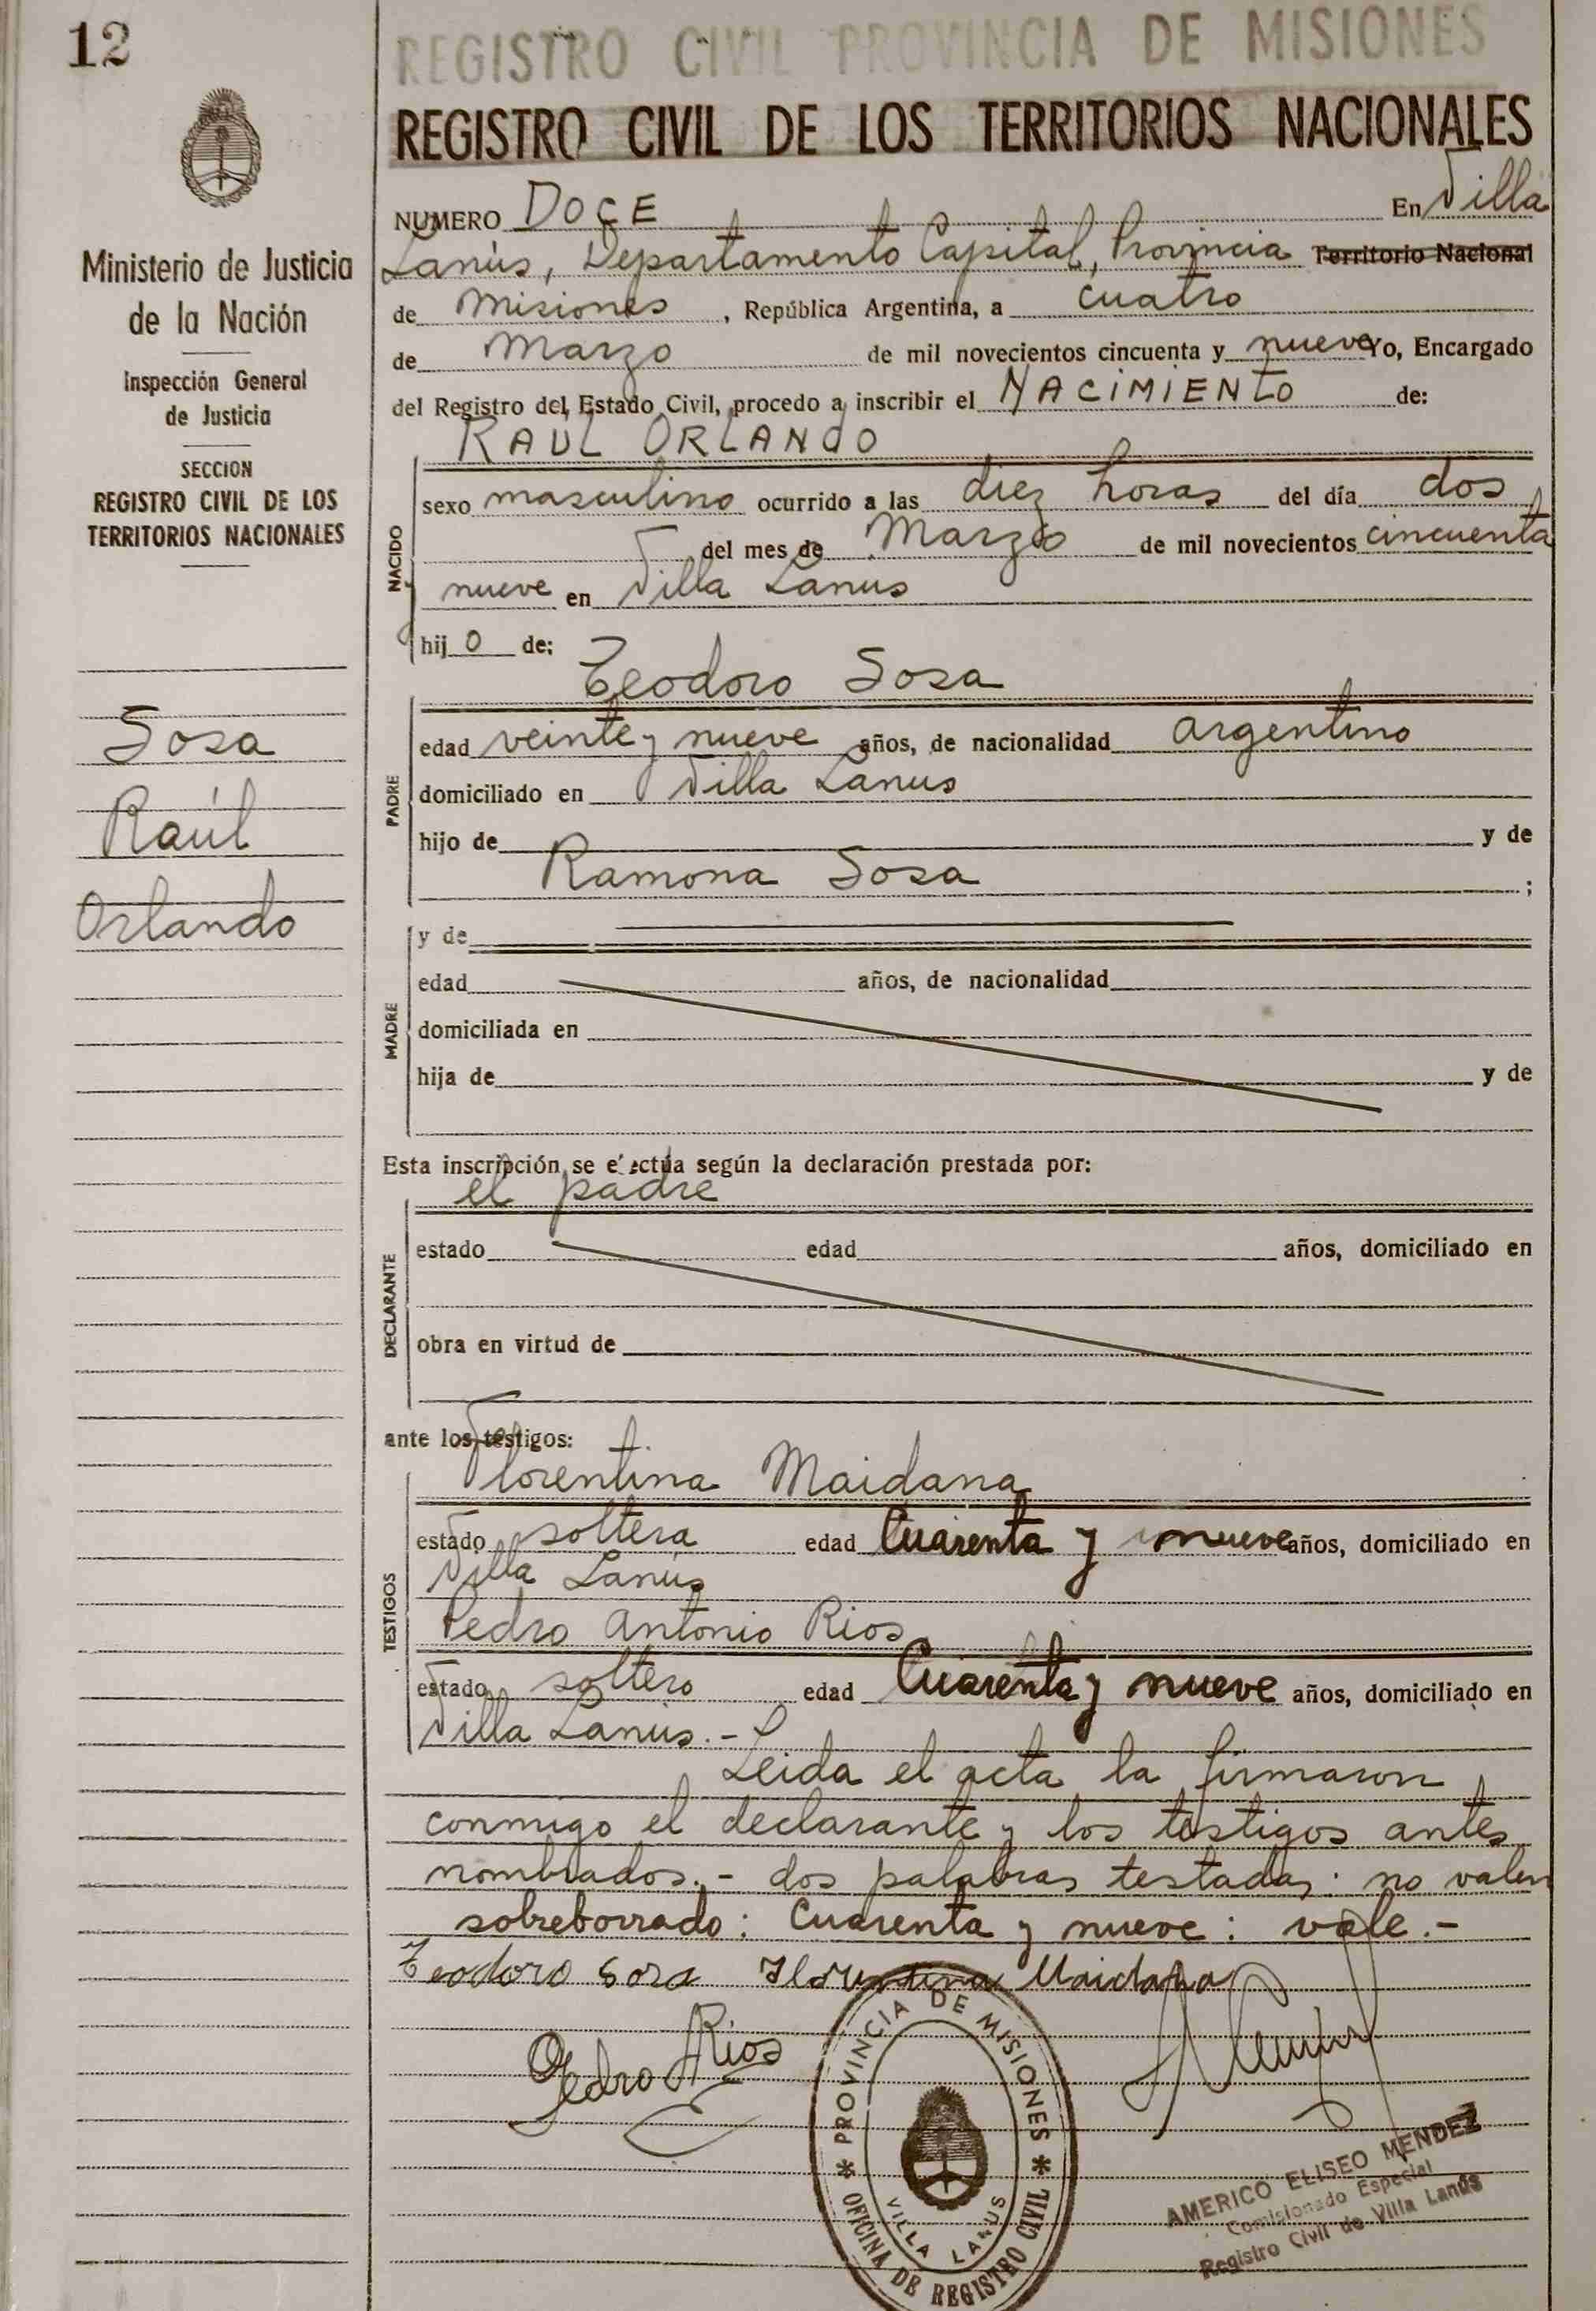 12
REGISTRO CIVIL PROVINCIA DE MISIONES
REGISTRO CIVIL DE LOS TERRITORIOS NACIONALES
Ministerio de Justicia
de la Nación
Inspección General
de Justicia
SECCION
REGISTRO CIVIL DE LOS
TERRITORIOS NACIONALES
Sosa
Raúl
Orlando
NUMERO DOCE En Villa
Lanús, Departamento Capital, Provincia Territorio Nacional
de Misiones, República Argentina, a cuatro
de Marzo de mil novecientos cincuenta y nueve Yo, Encargado
del Registro del Estado Civil, procedo a inscribir el NACIMIENTO de:
RAÚL ORLANDO
NACIDO
sexo masculino ocurrido a las diez horas del día dos
del mes de Marzo de mil novecientos cincuenta
y nueve en Villa Lanus
hijo de:
Teodoro Sosa
PADRE
edad veinte y nueve años, de nacionalidad argentino
domiciliado en Villa Lanus
hijo de y de
Ramona Sosa ;
MADRE
y de
edad años, de nacionalidad
domiciliada en
hija de y de
Esta inscripción se efectúa según la declaración prestada por:
el padre
DECLARANTE
estado edad años, domiciliado en
obra en virtud de
ante los testigos:
TESTIGOS
Florentina Maidana
estado soltera edad Cuarenta y nueve años, domiciliado en
Villa Lanús
Pedro Antonio Rios
estado soltero edad Cuarenta y nueve años, domiciliado en
Villa Lanús.-
Leida el acta la firmaron
conmigo el declarante y los testigos antes
nombrados.- dos palabras testadas: no valen
sobreborrado: Cuarenta y nueve: vale.-
Teodoro Sosa Florentina Maidana
Pedro Rios
PROVINCIA DE MISIONES
OFICINA DE REGISTRO CIVIL
VILLA LANUS
AMERICO ELISEO MENDEZ
Comisionado Especial
Registro Civil de Villa Lanús